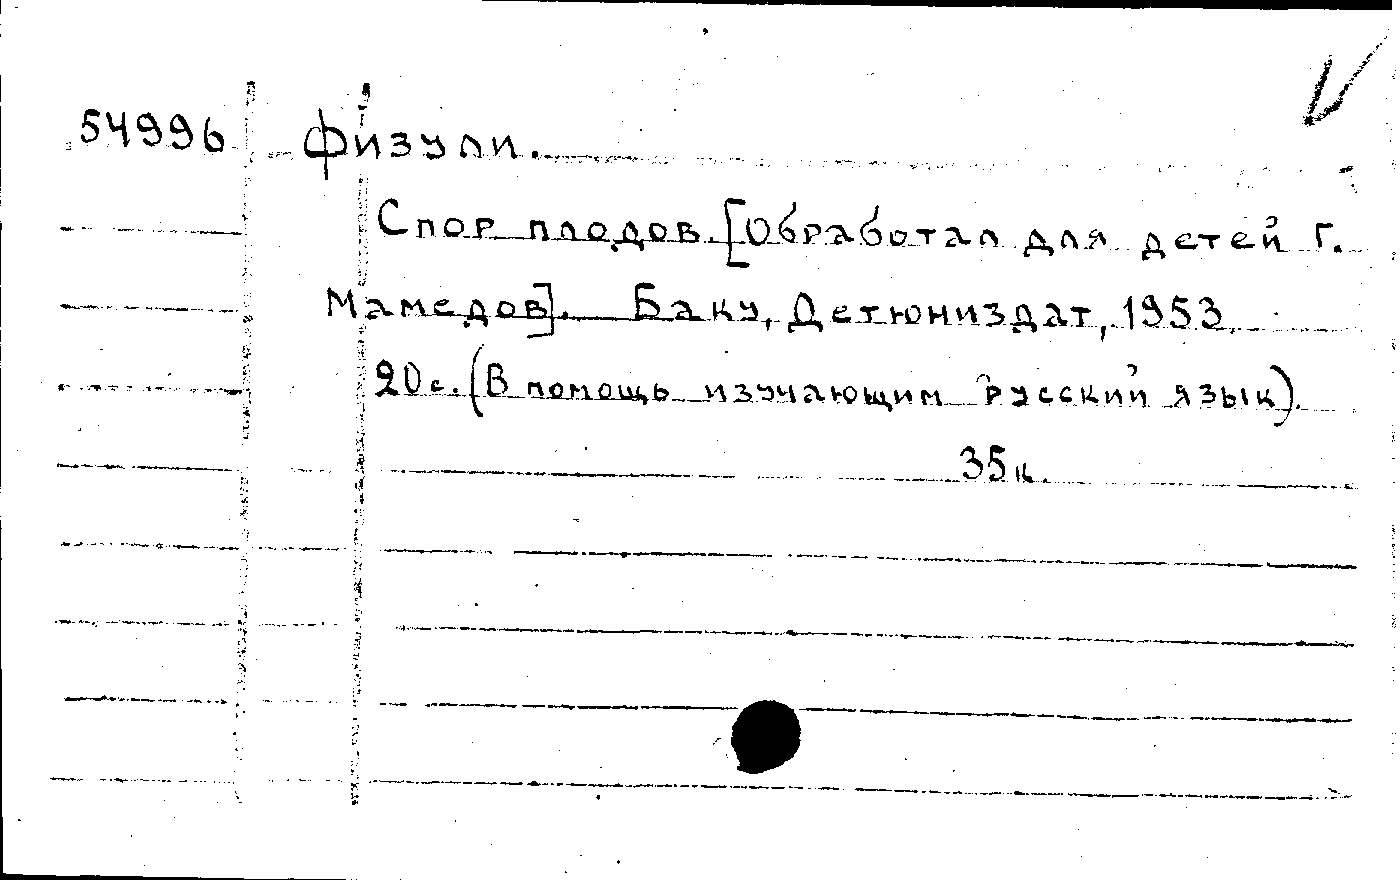 54996 Физули.
Спор плодов. [Обработал для детей Г.
Мамедов]. Баку, Детюниздат, 1953
20 с. (В помощь изучающим русский язык).
35 к.